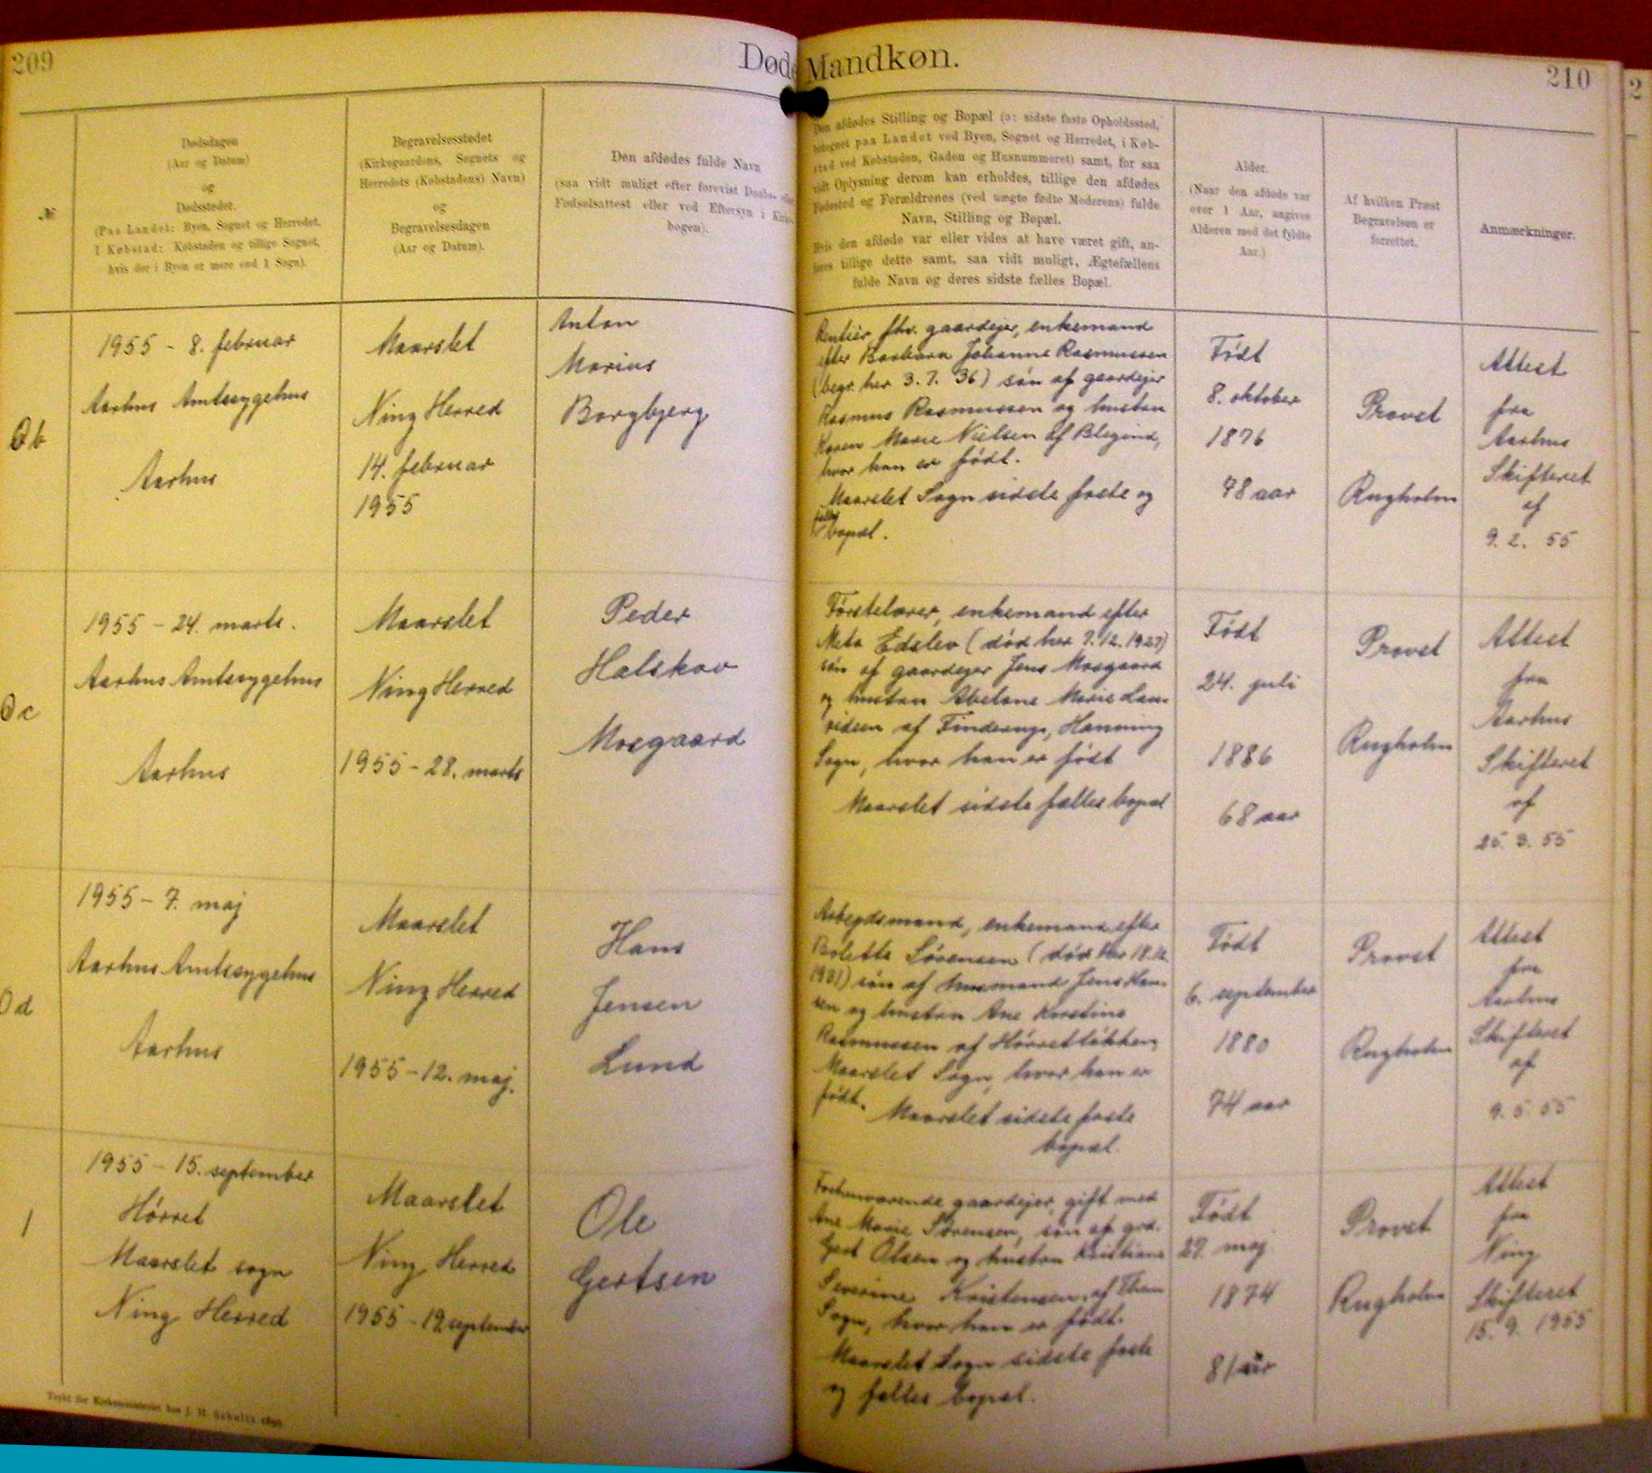 209
Døde Mandkøn.
210
2
№
Dødsdagen
(Aar og Datum)
og
Dødsstedet.
(Paa Landet: Byen, Sognet og Herredet,
I Købstad: Købstaden og tillige Sognet,
hvis der i Byen er mere end 1 Sogn).
Begravelsesstedet
(Kirkegaardens, Sognets og
Herredets (Købstadens) Navn)
og
Begravelsesdagen
(Aar og Datum).
Den afdødes fulde Navn
(saa vidt muligt efter forevist Daabs- eller
Fødselsattest eller ved Eftersyn i Kirke-
bogen).
Den afdødes Stilling og Bopæl (ɔ: sidste faste Opholdssted,
betegnet paa Landet ved Byen, Sognet og Herredet, i Køb-
stad ved Købstaden, Gaden og Husnummeret) samt, for saa
vidt Oplysning derom kan erholdes, tillige den afdødes
Fødested og Forældrenes (ved uægte fødte Moderens) fulde
Navn, Stilling og Bopæl.
Hvis den afdøde var eller vides at have været gift, an-
føres tillige dette samt, saa vidt muligt, Ægtefællens
fulde Navn og deres sidste fælles Bopæl.
Alder.
(Naar den afdøde var
over 1 Aar, angives
Alderen med det fyldte
Aar.)
Af hvilken Præst
Begravelsen er
forrettet.
Anmærkninger.
0b
1955 - 8. februar
Aarhus Amtssygehus
Aarhus
Maarslet
Ning Herred
14. februar
1955
Anton
Marius
Borgbjerg
Rentier, fhv. gaardejer, enkemand
efter Barbara Johanne Rasmussen
(begr. her 3. 7. 36) søn af gaardejer
Rasmus Rasmussen og hustru
Karen Marie Nielsen af Blegind,
hvor han er født.
Maarslet Sogn sidste faste og
fælles
bopæl.
Født
8. oktober
1876
78 aar
Provst
Rugholm
Attest
fra
Aarhus
Skifteret
af
9. 2. 55
0c
1955 - 24. marts.
Aarhus Amtssygehus
Aarhus
Maarslet
Ning Herred
1955 - 28. marts
Peder
Halskov
Mosgaard
Førstelærer, enkemand efter
Meta Edslev (død her 7. 12. 1927)
søn af gaardejer Jens Mosgaard
og hustru Abelone Marie Lau-
ridsen af Finderup, Hanning
Sogn, hvor han er født
Maarslet sidste fælles bopæl
Født
24. juli
1886
68 aar
Provst
Rugholm
Attest
fra
Aarhus
Skifteret
af
25. 3. 55
0d
1955 - 7. maj
Aarhus Amtssygehus
Aarhus
Maarslet
Ning Herred
1955 - 12. maj.
Hans
Jensen
Lund
Arbejdsmand, enkemand efter
Bolette Sørensen (død her 18. 12.
1931) søn af husmand Jens Han-
sen og hustru Ane Kirstine
Rasmussen af Hørretløkken,
Maarslet Sogn, hvor han er
født.
Maarslet sidste faste
bopæl.
Født
6. september
1880
74 aar
Provst
Rugholm
Attest
fra
Aarhus
Skifteret
af
9. 5. 55
1
1955 - 15. september
Hørret
Maarslet sogn
Ning Herred
Maarslet
Ning Herred
1955 - 19. september
Ole
Gertsen
Forhenværende gaardejer, gift med
Ane Marie Sørensen, søn af grd.
Gert Olsen og hustru Kristiane
Severine Kristensen af Them
Sogn, hvor han er født.
Maarslet Sogn sidste faste
og fælles bopæl.
Født
27. maj
1874
81 aar
Provst
Rugholm
Attest
fra
Ning
Skifteret
15. 9. 1955
Trykt for Kirkeministeriet hos J. H. Schultz